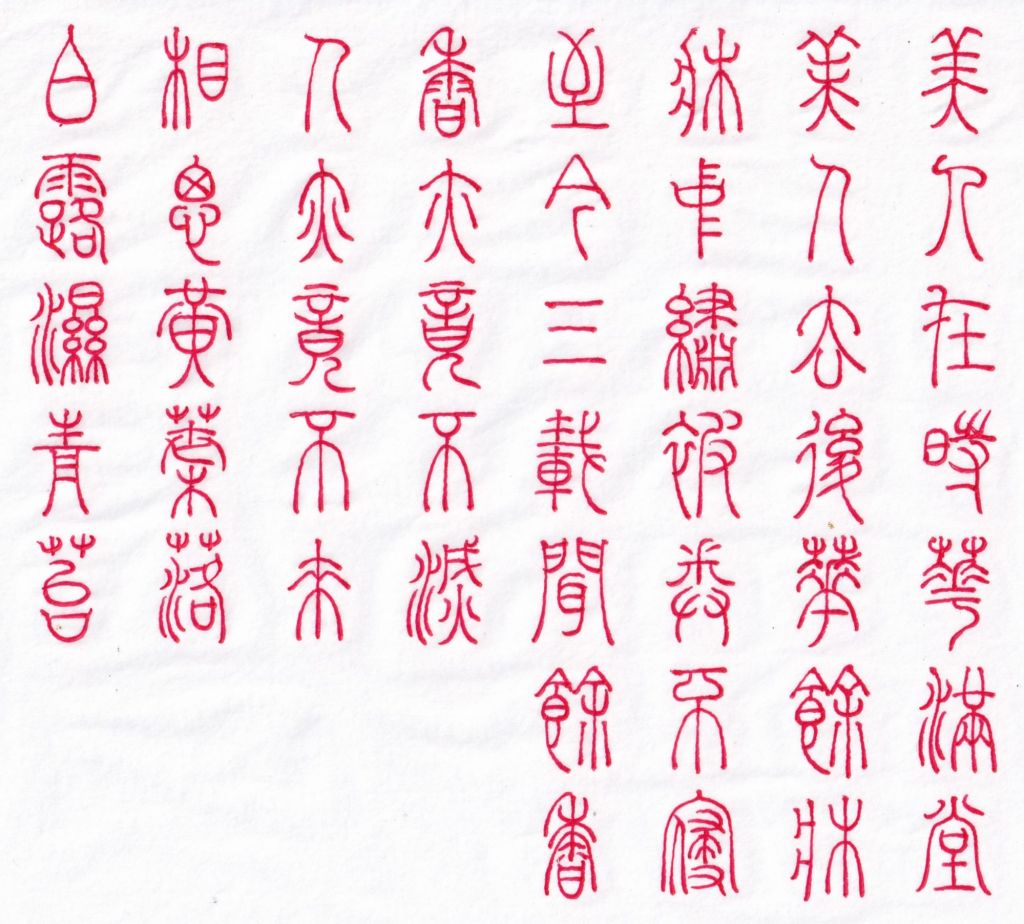 美人在時華滿堂
美人去後華餘牀
牀中繡被卷不寢
至今三載聞餘香
香亦竟不滅
人亦竟不來
相思黃葉落
白露濕青苔